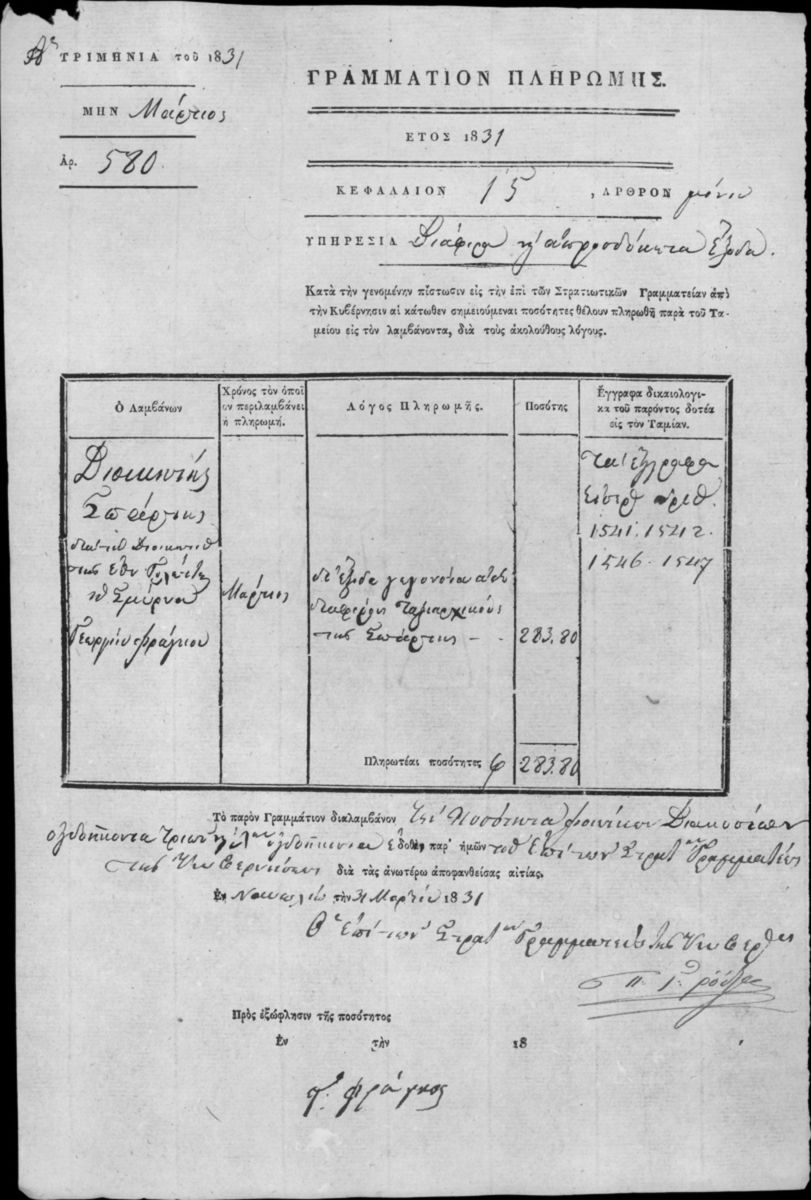 Αη ΤΡΙΜΗΝΙΑ τοῦ 1831
ΜΗΝ Μάρτιος
Ἀρ. 580
ΓΡΑΜΜΑΤΙΟΝ ΠΛΗΡΩΜΗΣ.
ΕΤΟΣ 1831
ΚΕΦΑΛΑΙΟΝ 15 , ΑΡΘΡΟΝ μόνον
ΥΠΗΡΕΣΙΑ Διάφορα κ' ἀπροσδόκητα Ἔξοδα.
Κατὰ τὴν γενομένην πίστωσιν εἰς τὴν ἐπὶ τῶν Στρατιωτικῶν Γραμματείαν ἀπὸ
τὴν Κυβέρνησιν αἱ κάτωθεν σημειούμεναι ποσότητες θέλουν πληρωθῆ παρὰ τοῦ Τα-
μείου εἰς τὸν λαμβάνοντα, διὰ τοὺς ἀκολούθους λόγους.
Ὁ Λαμβάνων
Χρόνος τὸν ὁποῖ
ον περιλαμβάνει
ἡ πληρωμή.
Λόγος Πληρωμῆς.
Ποσότης
Ἔγγραφα δικαιολογι-
κὰ τοῦ παρόντος δοτέα
εἰς τὸν Ταμίαν.
Διοικητής
Σπάρτης
διὰ τοῦ Διοικητοῦ
τῆς
Σμύρνα
Γεωργίου Φράγκου
Μάρτιος
δι' ἔξοδα γεγονότα
διαφόρους
τῆς Σπάρτης - -
283.80
τὰ ἔγγραφα
ἀριθ.
1541. 1542.
1546. 1547
Πληρωτέαι ποσότητες φ 283.80
Τὸ παρὸν Γραμμάτιον διαλαμβάνον τὴν Ποσότητα φοινίκων Διακοσίων
ὀγδοήκοντα τριῶν ὀγδοήκοντα ἐδόθη παρ' ἡμῶν τοῦ Ἐπὶ τῶν Στρατων Γραμματέως
τῆς Κυβερνήσεως διὰ τὰς ἀνωτέρω ἀποφανθείσας αἰτίας.
Ἐν Ναυπλίῳ τὴν 31 Μαρτίου 1831
Ὁ Ἐπὶ τῶν Στρατων Γραμματεὺς τῆς Κυβερ
Π. Γ. Ρόδιος
Πρὸς ἐξώφλησιν τῆς ποσότητος
Ἐν τὴν 18
Γ. Φράγκος